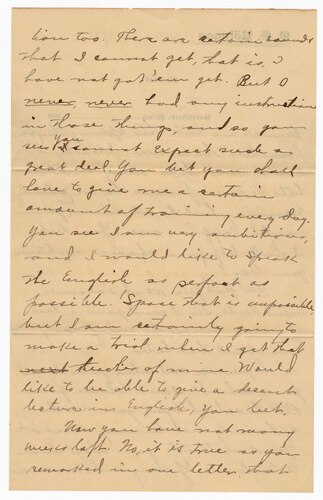 tion too. There are certain sounds
that I cannot get, that is, I
have not got 'em yet. But I
never, never had any instruction
in those things, and so you
see You cannot expect such a
great deal. You bet you shall
have to give me a certain
amount of training every day.
You see I am very ambitious,
and I would like to speak
the English as perfect as
possible 'Spose that is impossible
but I am certainly going to
make a trial when I get that
next teacher of mine. Would
like to be able to give a decent
lecture in English, you bet.
Now you have not many
weeks left. No, it is true as you
remarked in one letter that